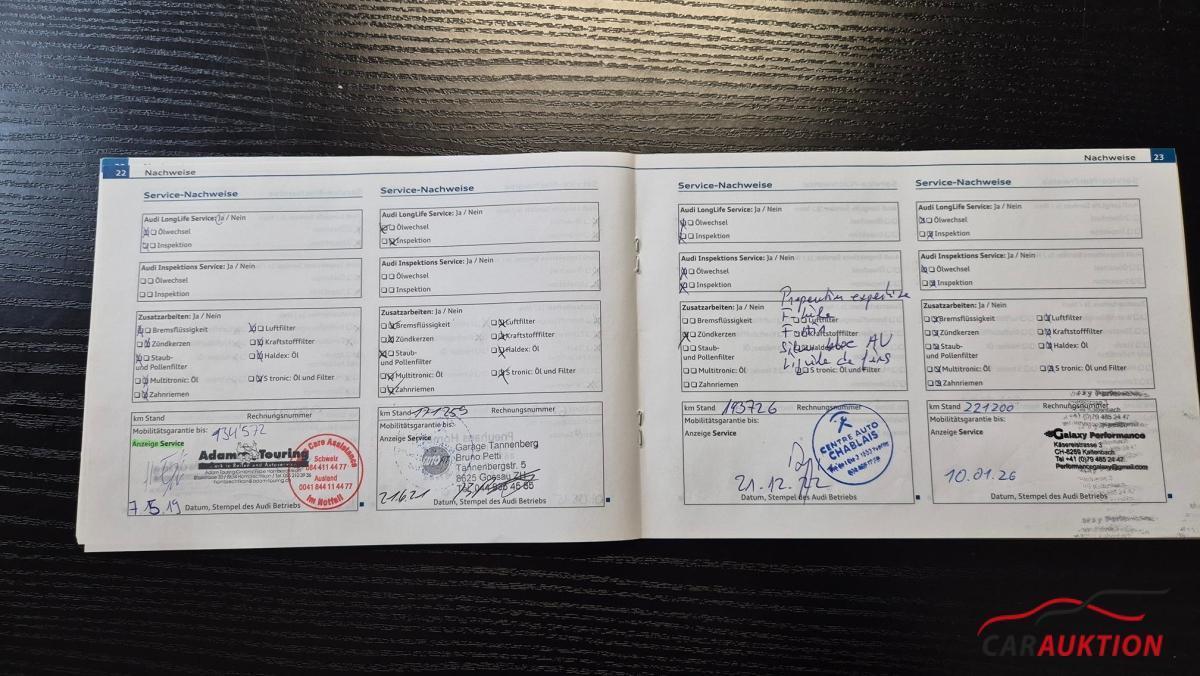 22 Nachweise
Service-Nachweise
Audi LongLife Service: Ja / Nein
Ölwechsel
Inspektion
Audi Inspektions Service: Ja / Nein
Ölwechsel
Inspektion
Zusatzarbeiten: Ja / Nein
Bremsflüssigkeit Luftfilter
Zündkerzen Kraftstofffilter
Staub- Haldex: Öl
und Pollenfilter
Multitronic: Öl S tronic: Öl und Filter
Zahnriemen
km Stand Rechnungsnummer
Mobilitätsgarantie bis: 134'572
Anzeige Service
Adam Touring
Care Assistance
Schweiz
0844 411 44 77
Ausland
0041 844 11 44 77
Im Notfall
7.5.19
Datum, Stempel des Audi Betriebs
Service-Nachweise
Audi LongLife Service: Ja / Nein
Ölwechsel
Inspektion
Audi Inspektions Service: Ja / Nein
Ölwechsel
Inspektion
Zusatzarbeiten: Ja / Nein
Bremsflüssigkeit Luftfilter
Zündkerzen Kraftstofffilter
Staub- Haldex: Öl
und Pollenfilter
Multitronic: Öl S tronic: Öl und Filter
Zahnriemen
km Stand 171255 Rechnungsnummer
Mobilitätsgarantie bis:
Anzeige Service
Garage Tannenberg
Bruno Petti
Tannenbergstr. 5
8625 Gossau ZH
Tel. 044 935 45 65
21621
Datum, Stempel des Audi Betriebs
Nachweise 23
Service-Nachweise
Audi LongLife Service: Ja / Nein
Ölwechsel
Inspektion
Audi Inspektions Service: Ja / Nein
Ölwechsel
Inspektion
Zusatzarbeiten: Ja / Nein
Preparation expertise
Bremsflüssigkeit Luftfilter
Zündkerzen Kraftstofffilter
Staub- Haldex
und Pollenfilter
silent bloc AV
Liquide de freins
Multitronic: Öl S tronic: Öl und Filter
Zahnriemen
km Stand 193726 Rechnungsnummer
Mobilitätsgarantie bis:
Anzeige Service
CENTRE AUTO
CHABLAIS
21.12.22
Datum, Stempel des Audi Betriebs
Service-Nachweise
Audi LongLife Service: Ja / Nein
Ölwechsel
Inspektion
Audi Inspektions Service: Ja / Nein
Ölwechsel
Inspektion
Zusatzarbeiten: Ja / Nein
Bremsflüssigkeit Luftfilter
Zündkerzen Kraftstofffilter
Staub- Haldex: Öl
und Pollenfilter
Multitronic: Öl S tronic: Öl und Filter
Zahnriemen
km Stand 221200 Rechnungsnummer
Mobilitätsgarantie bis:
Anzeige Service
Galaxy Performance
Käsereistrasse 3
CH-8259 Kaltenbach
Tel +41 (0)79 485 24 47
Performancegalaxy@gmail.com
10.01.26
Datum, Stempel des Audi Betriebs
CARAUKTION